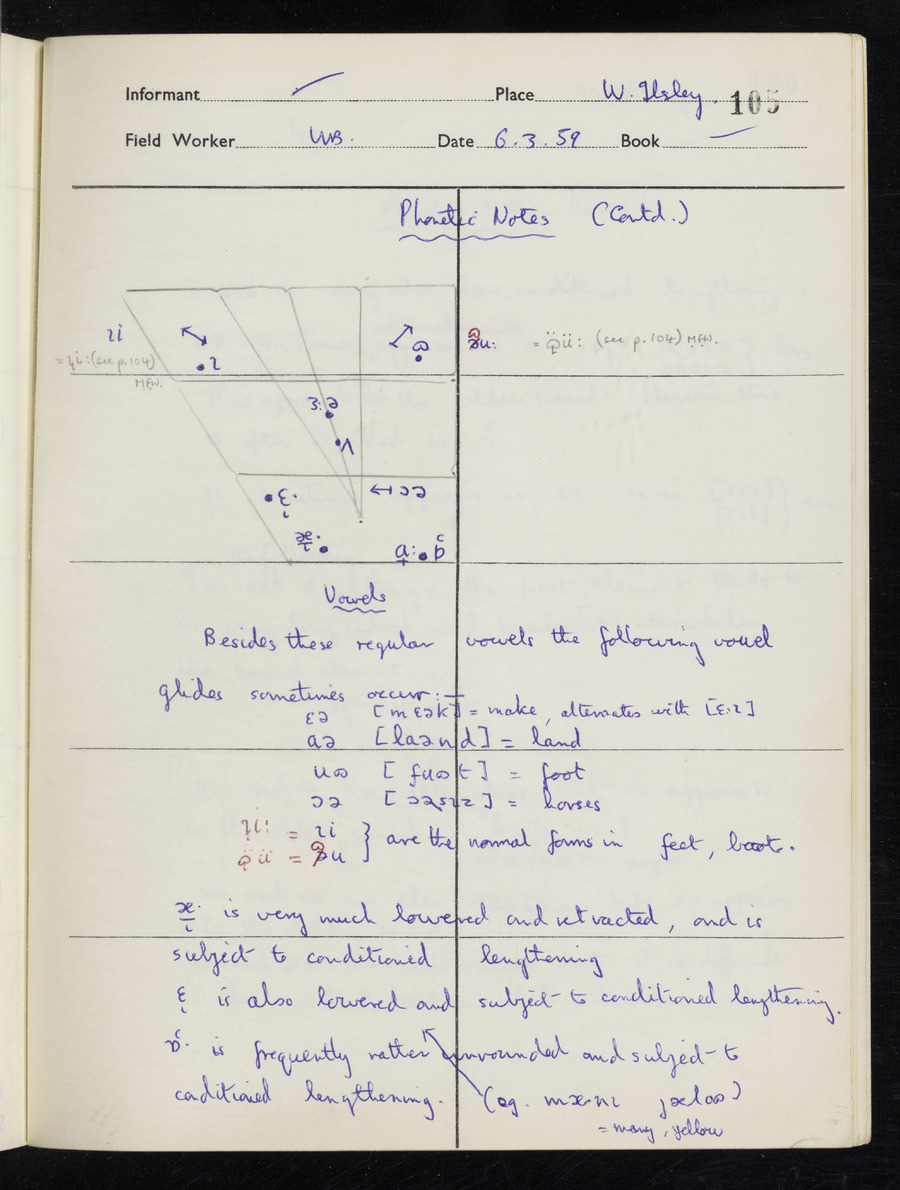 Informant Place W. Ilsley. 105
Field Worker WB. Date 6.3.59 Book
Phonetic Notes (Contd.)
ɿi
= ɿ̞i: (see p. 104)
M.F.W.
ɿ
ɷ
u: = ɷ̈ü: (see p. 104) M.F.W.
ɜ:ə
ʌ
ɛ̞·
ɔə
æ̞·
a̟: ɒ̜
Vowels
Besides these regular vowels the following vowel
glides sometimes occur:—
ɛə [mɛəkɪ] = make, alternates with [ɛ·ɿ]
aə [laənd] = land
uɷ [fuɷt] = foot
ɔə [ɔəsɿz] = horses
ɿ̞i: = ɿi } are the normal forms in feet, boot.
ɷ̈ ü = u
æ̞· is very much lowered and retracted, and is
subject to conditioned lengthening
ɛ̞ is also lowered and subject to conditioned lengthening.
ɒ̜· is frequently rather unrounded and subject to
conditioned lengthening. (eg. mæ·nɿ jælɷ)
= many, yellow